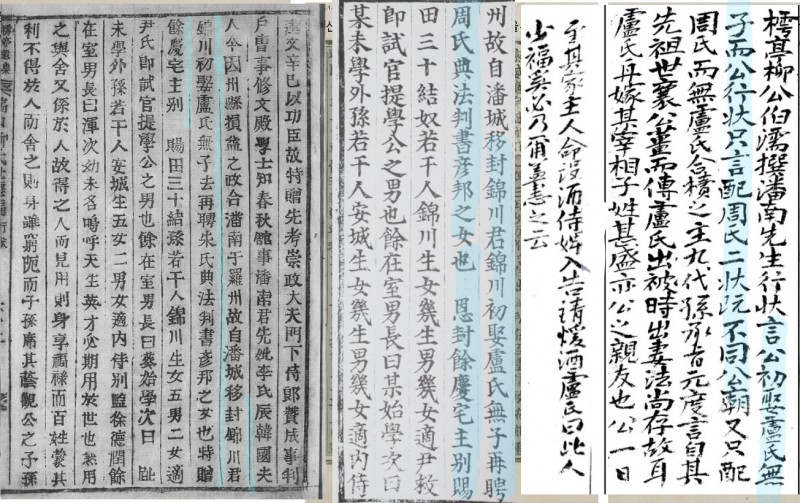 樗菴柳公伯濡撰潘南先生行狀言公初娶盧氏無
子而公行狀只言配周氏二狀旣不同公廟又只配
周氏而無盧氏合櫝之主九代孫承旨元度言自其
先祖世襄公盡而傳盧氏出被時出妻法尚存故耳
盧氏再嫁其宰相子姓甚盛亦公之親友也公一日
至其家主人命設酒侍婢入告請煖酒盧氏曰此人
少福奚必乃爾盖恚之云
州故自潘城移封錦川君錦川初娶盧氏無子再聘
周氏典法判書彥邦之女也 恩封餘慶宅主別賜
田三十結奴若干人錦川生女幾生男幾女適尹敉
即試官提學公之男也餘在室男長曰某始學次曰
某未學外孫若干人安城生女幾生男幾女適內侍
文辛巳以功臣故特贈先考崇政大夫門下侍郞贊成事判
戶曹事修文殿學士知春秋館事潘南君先妣李氏辰韓國夫
人今因州縣損益之政合潘南于羅州故自潘城移封錦川君
錦川初娶盧氏無子去再聘朱氏典法判書彥邦之女也特贈
餘慶宅主別 賜田三十結孫若干人錦川生女五男二女適
尹氏即試官提學公之男也餘在室男長曰葵始學次曰 趾
未學外孫若干人安城生五女二男女適內侍別監徐德潤餘
在室男長曰渾次幼未名嗚呼天生英才必期用於世也然用
之與舍又係於人故得之人而見用則身享福祿而百姓蒙其
利不得於人而舍之則身雖窮阨而子孫席其蔭觀公之子孫